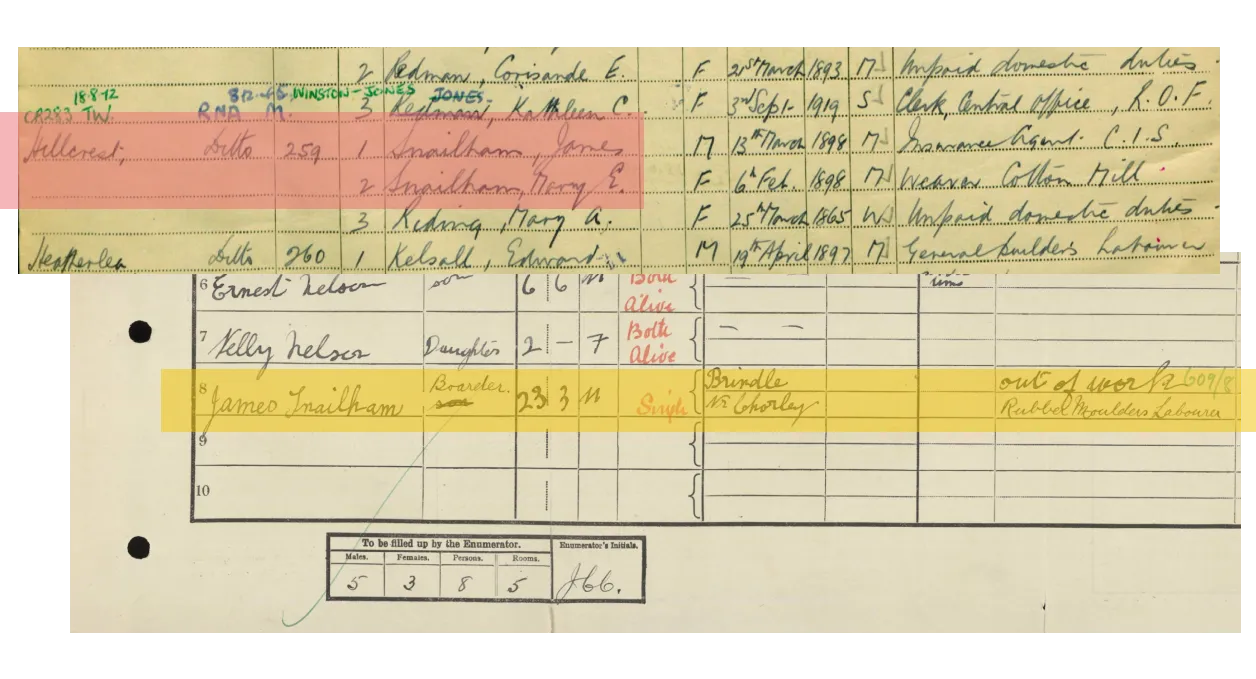 2 Redman, Corisande E. F 21st March 1893 M Unpaid domestic duties
18-8-72 8-12-45 WINSTON-JONES JONES.
CR283 TW. RNA M. 3 Redman, Kathleen C. F 3rd Sept. 1919 S Clerk, Central Office, R.O.F.
Hillcrest, Ditto 259 1 Snailham, James M 13th March 1898 M Insurance Agent C.I.S.
2 Snailham, Mary E. F 6th Feb. 1898 M Weaver Cotton Mill
3 Riding, Mary A. F 25th March 1865 W Unpaid domestic duties
Heatherlea Ditto 260 1 Kelsall, Edward M 19th April 1897 M General builder's Labourer
6 Ernest Nelson son 6 6 M Both Alive
7 Nelly Nelson Daughter 2 — 7 Both Alive — —
8 James Snailham Boarder. son 23 3 M Single Brindle Nr Chorley out of work 609/8
Rubber Moulders Labourer
9
10
To be filled up by the Enumerator. Enumerator's Initials.
Males. Females. Persons. Rooms.
5 3 8 5